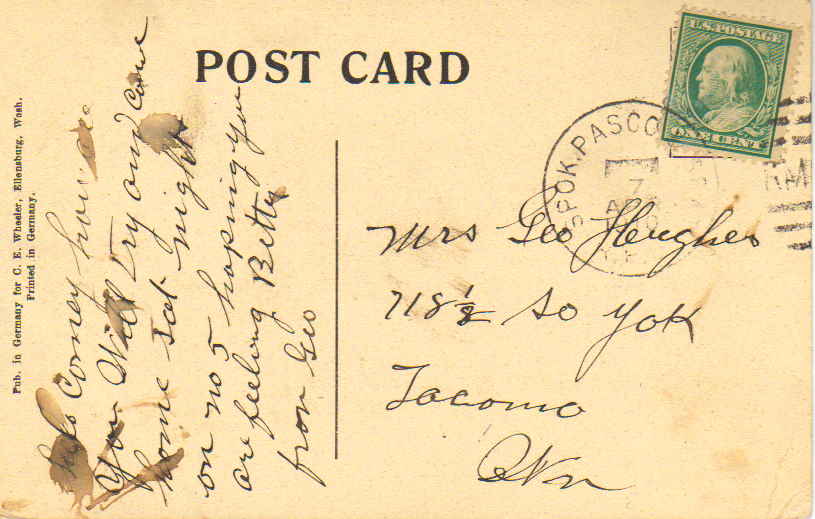 POST CARD
U.S. POSTAGE
ONE CENT
SPOK. PASCO
7
Pub. in Germany for C. E. Wheeler, Ellensburg, Wash.
Printed in Germany.
Corney how are
You Will Try and Come
home sat night
on no 5 hoping you
are feeling Better
from Geo
Mrs Geo Hughes
718 1/2 So Yok
Tacoma
Wn